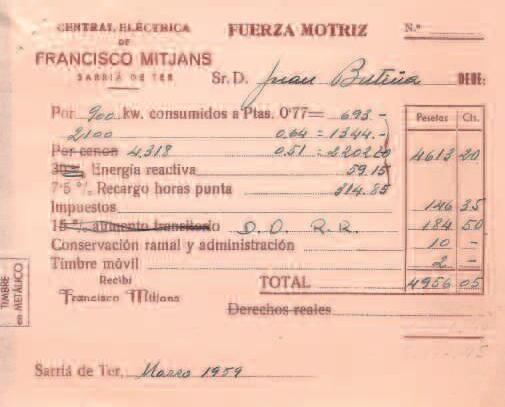 CENTRAL ELÉCTRICA FUERZA MOTRIZ N.º
DE
FRANCISCO MITJANS
SARRIÁ DE TER Sr. D. Juan Butiña DEBE:
Pesetas Cts.
Por 900 kw. consumidos a Ptas. 0'77= 693.-
2100 0,64 = 1344.-
Por canon 4.318 0.51 = 2202 20 4613 20
30% Energía reactiva 59.15
7'5 % Recargo horas punta 314.85
Impuestos 146 35
15 % aumento transitorio D. O. R. R. 184 50
Conservación ramal y administración 10 -
Timbre móvil 2 -
Recibí TOTAL 4956 05
Francisco Mitjans
Derechos reales
TIMBRE
en METÁLICO
Sarriá de Ter, Marzo 1959